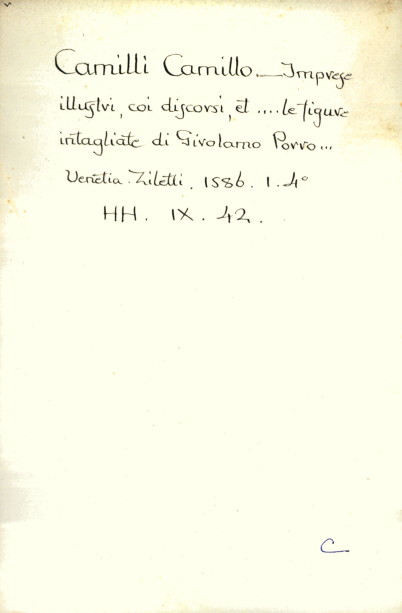 Camilli Camillo._Imprese
illustri, coi discorsi, et ....le figure
intagliate di Girolamo Porro...
Venetia. Ziletti. 1586. 1. 4°
HH. IX. 42.
C